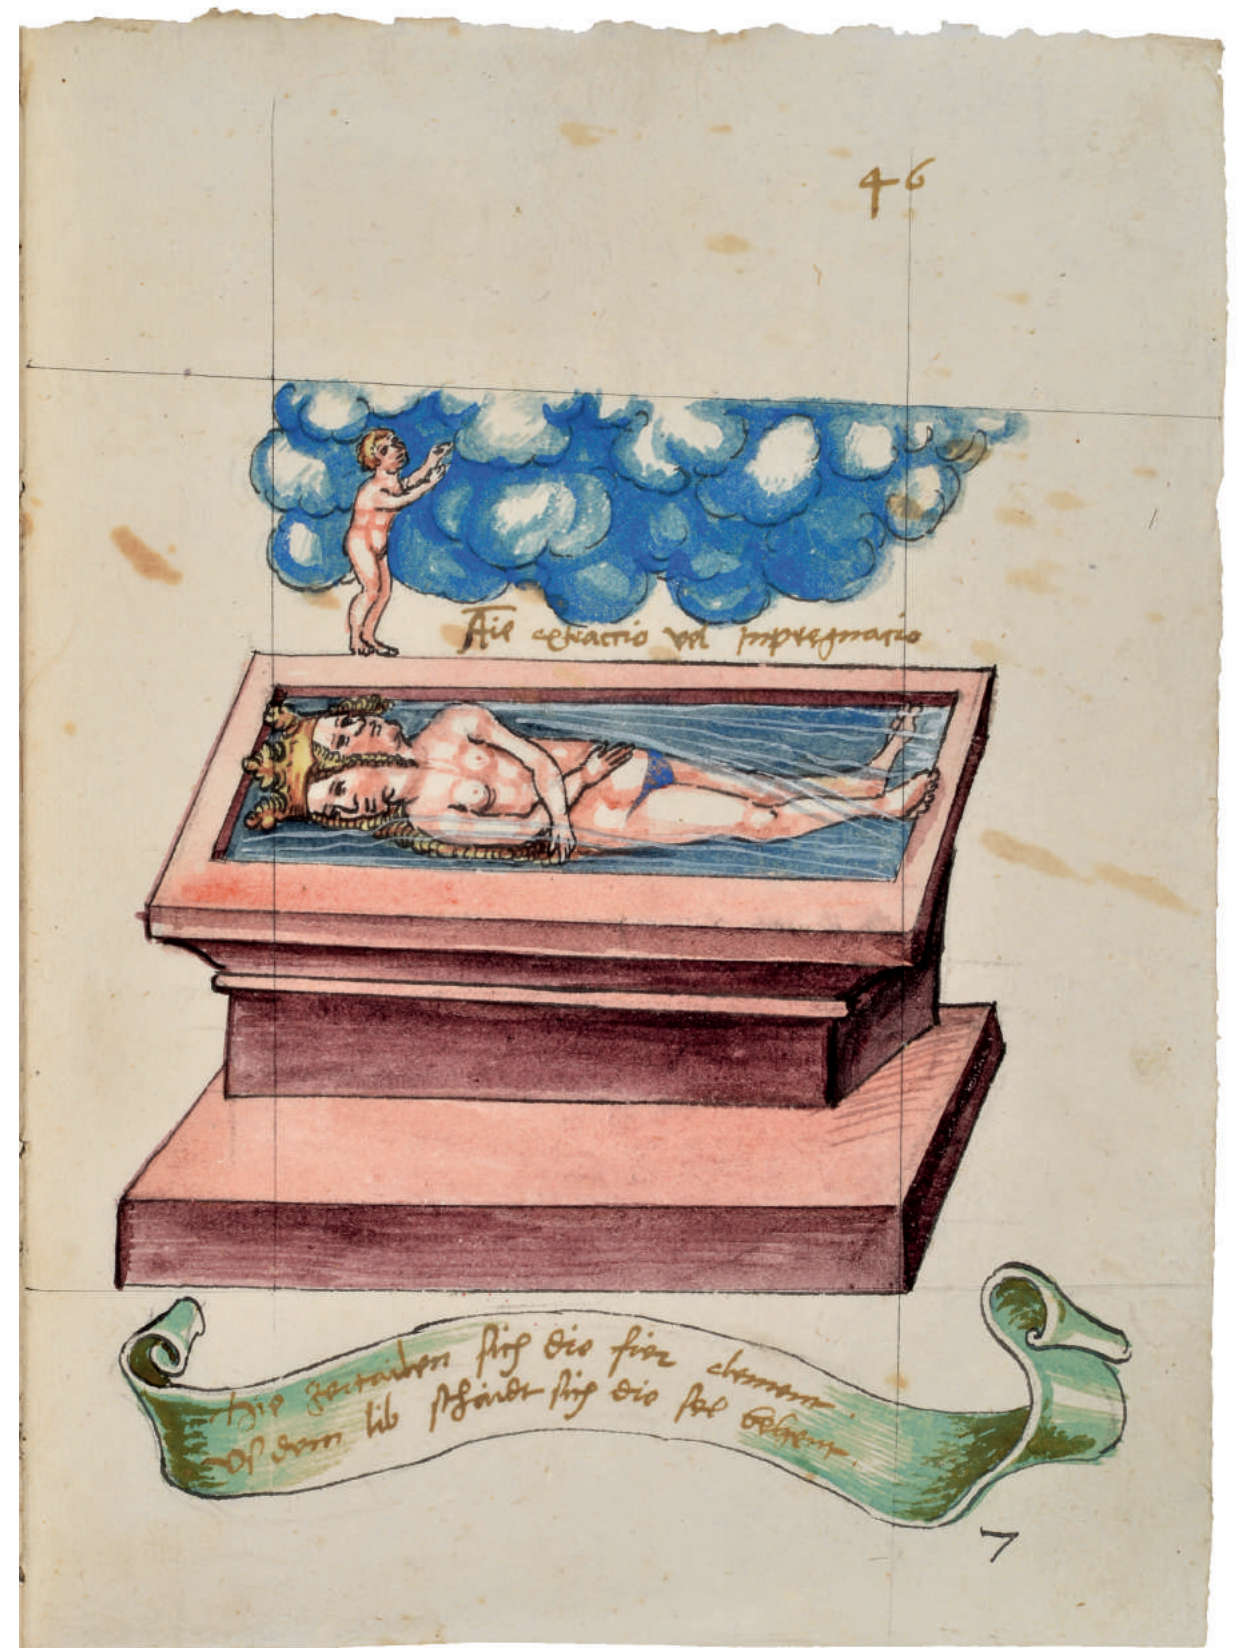 46
Aie extractio vel Inpregnacio
Hie zertailen sich die fier element
vs dem lib schaidt sich die sel behent.
7